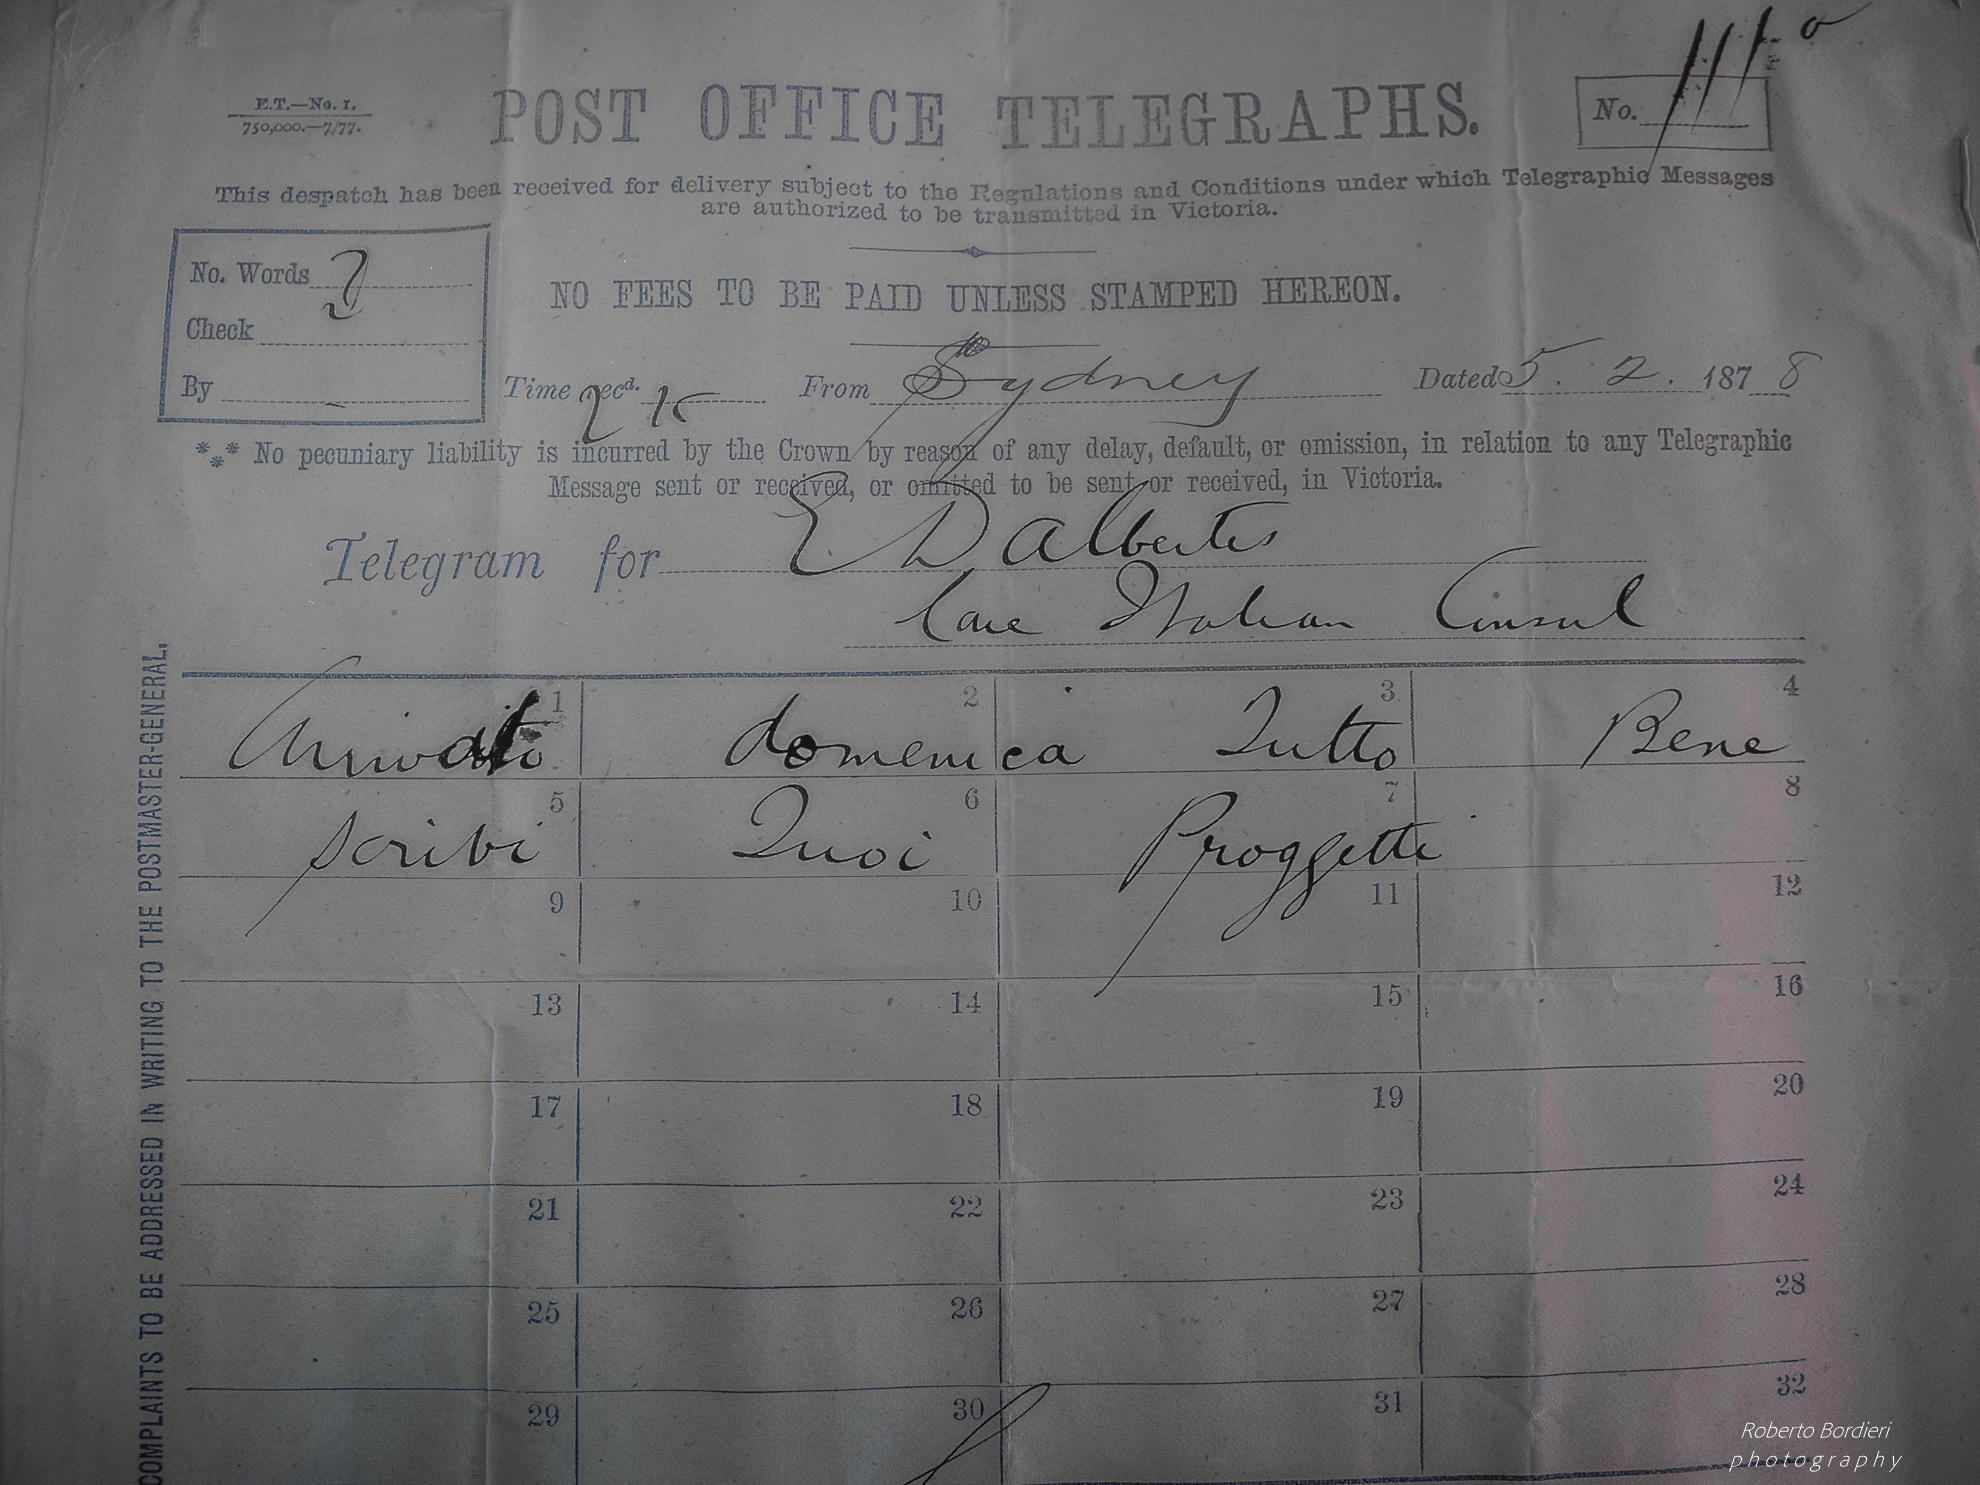 E.T.—No. 1.
750,000.—7/77.
POST OFFICE TELEGRAPHS.
No.
This despatch has been received for delivery subject to the Regulations and Conditions under which Telegraphic Messages
are authorized to be transmitted in Victoria.
No. Words 7
Check
By
NO FEES TO BE PAID UNLESS STAMPED HEREON.
Time recd. From Sydney Dated 5. 2. 1878
*** No pecuniary liability is incurred by the Crown by reason of any delay, default, or omission, in relation to any Telegraphic
Message sent or received, or omitted to be sent or received, in Victoria.
Telegram for E D Albertis
Care Italian Consul
1 2 3 4
Arrivato domenica Tutto Bene
5 6 7 8
scribi Tuoi Proggetti
9 10 11 12
13 14 15 16
17 18 19 20
21 22 23 24
25 26 27 28
29 30 31 32
COMPLAINTS TO BE ADDRESSED IN WRITING TO THE POSTMASTER-GENERAL.
Roberto Bordieri
photography